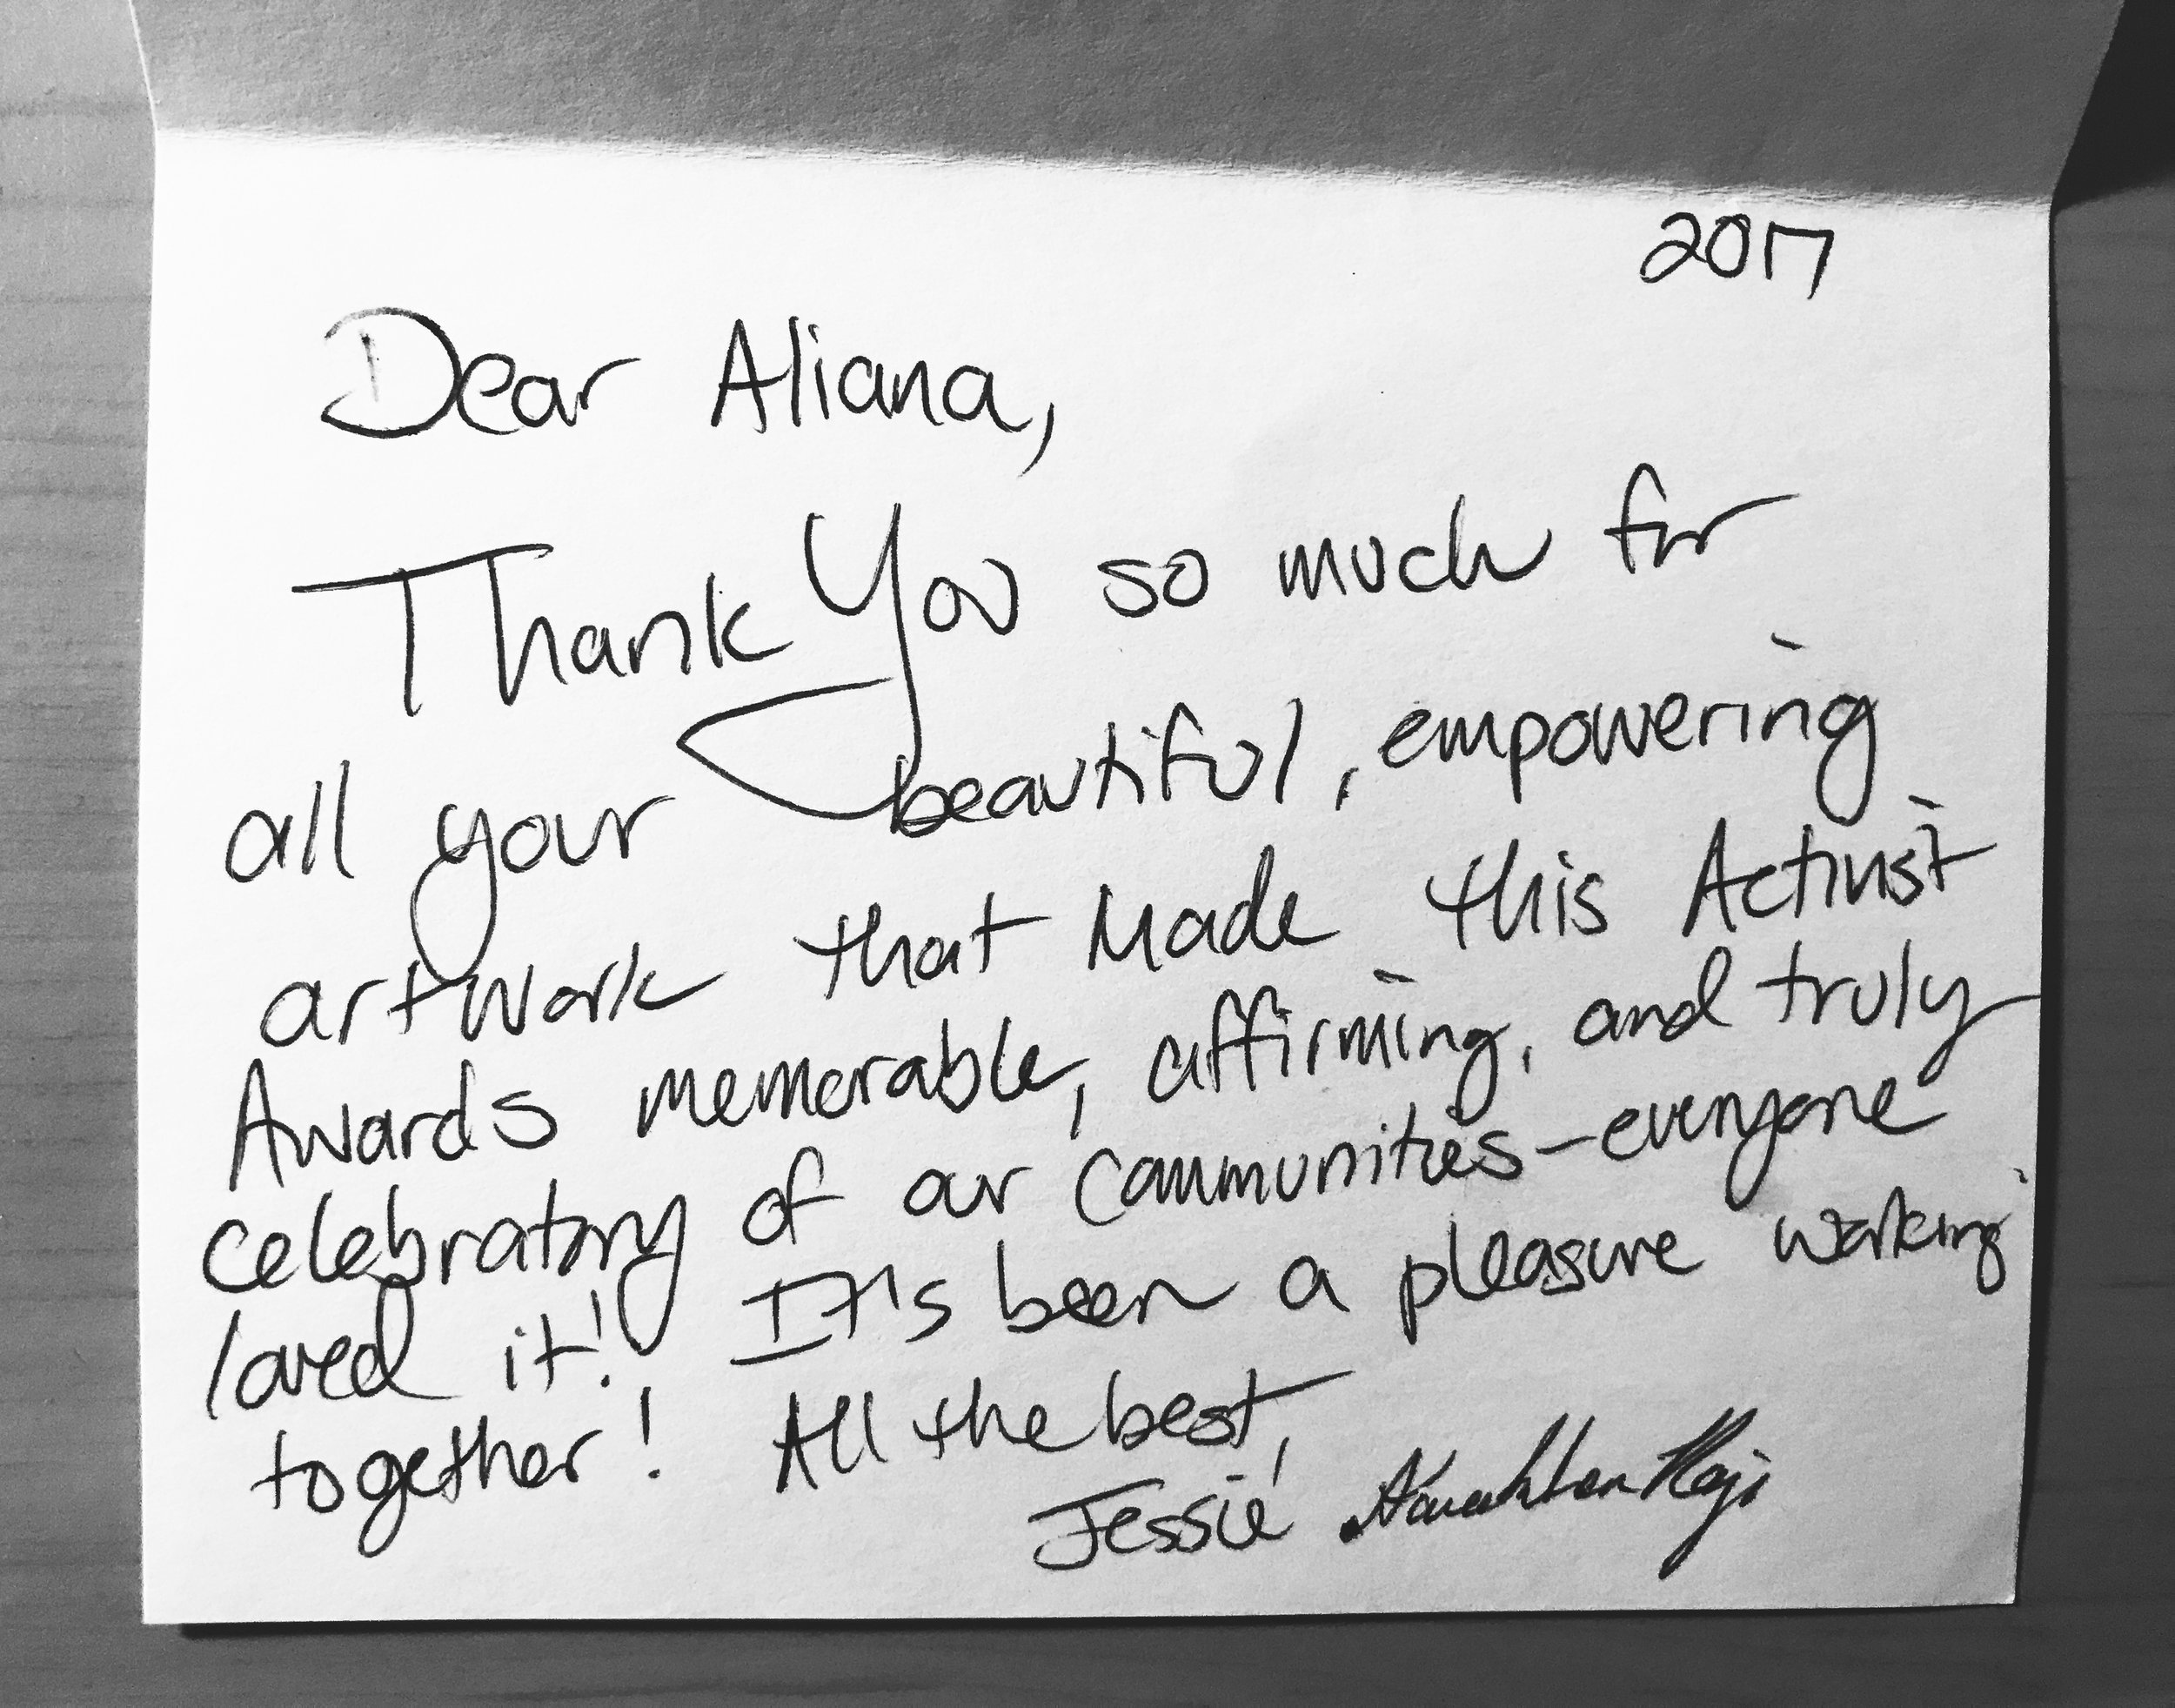 2017
Dear Aliana,
Thank You so much for
all your beautiful, empowering
artwork that Made this Activist
Awards memorable, affirming, and truly
celebratory of our communities-everyone
loved it! It's been a pleasure working
together! All the best,
Jessie